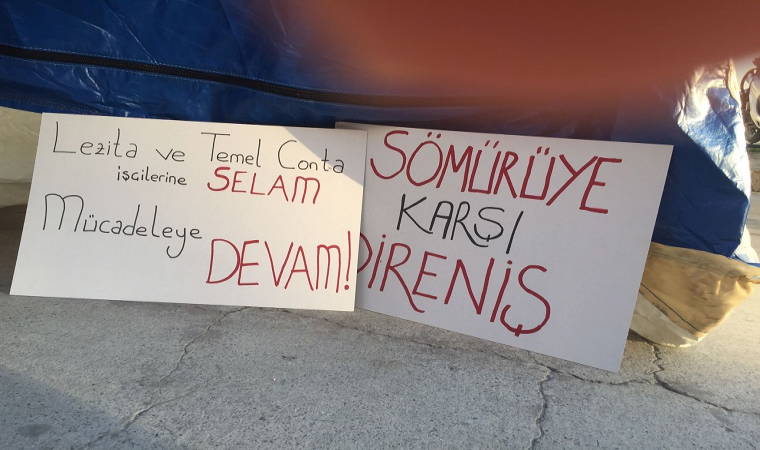 Lezita ve Temel Conta
işcilerine SELAM
Mücadeleye
DEVAM!
SÖMÜRÜYE
KARŞI
DİRENİŞ